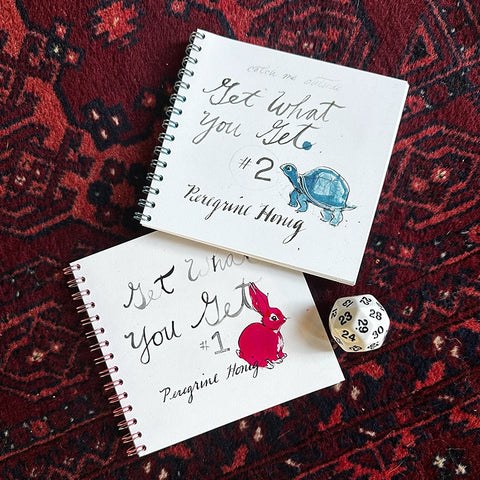 catch me outside
Get What
You Get.
#2
Peregrine Honig
Get What
You Get
#1
Peregrine Honig
32
23
29
28
24
30